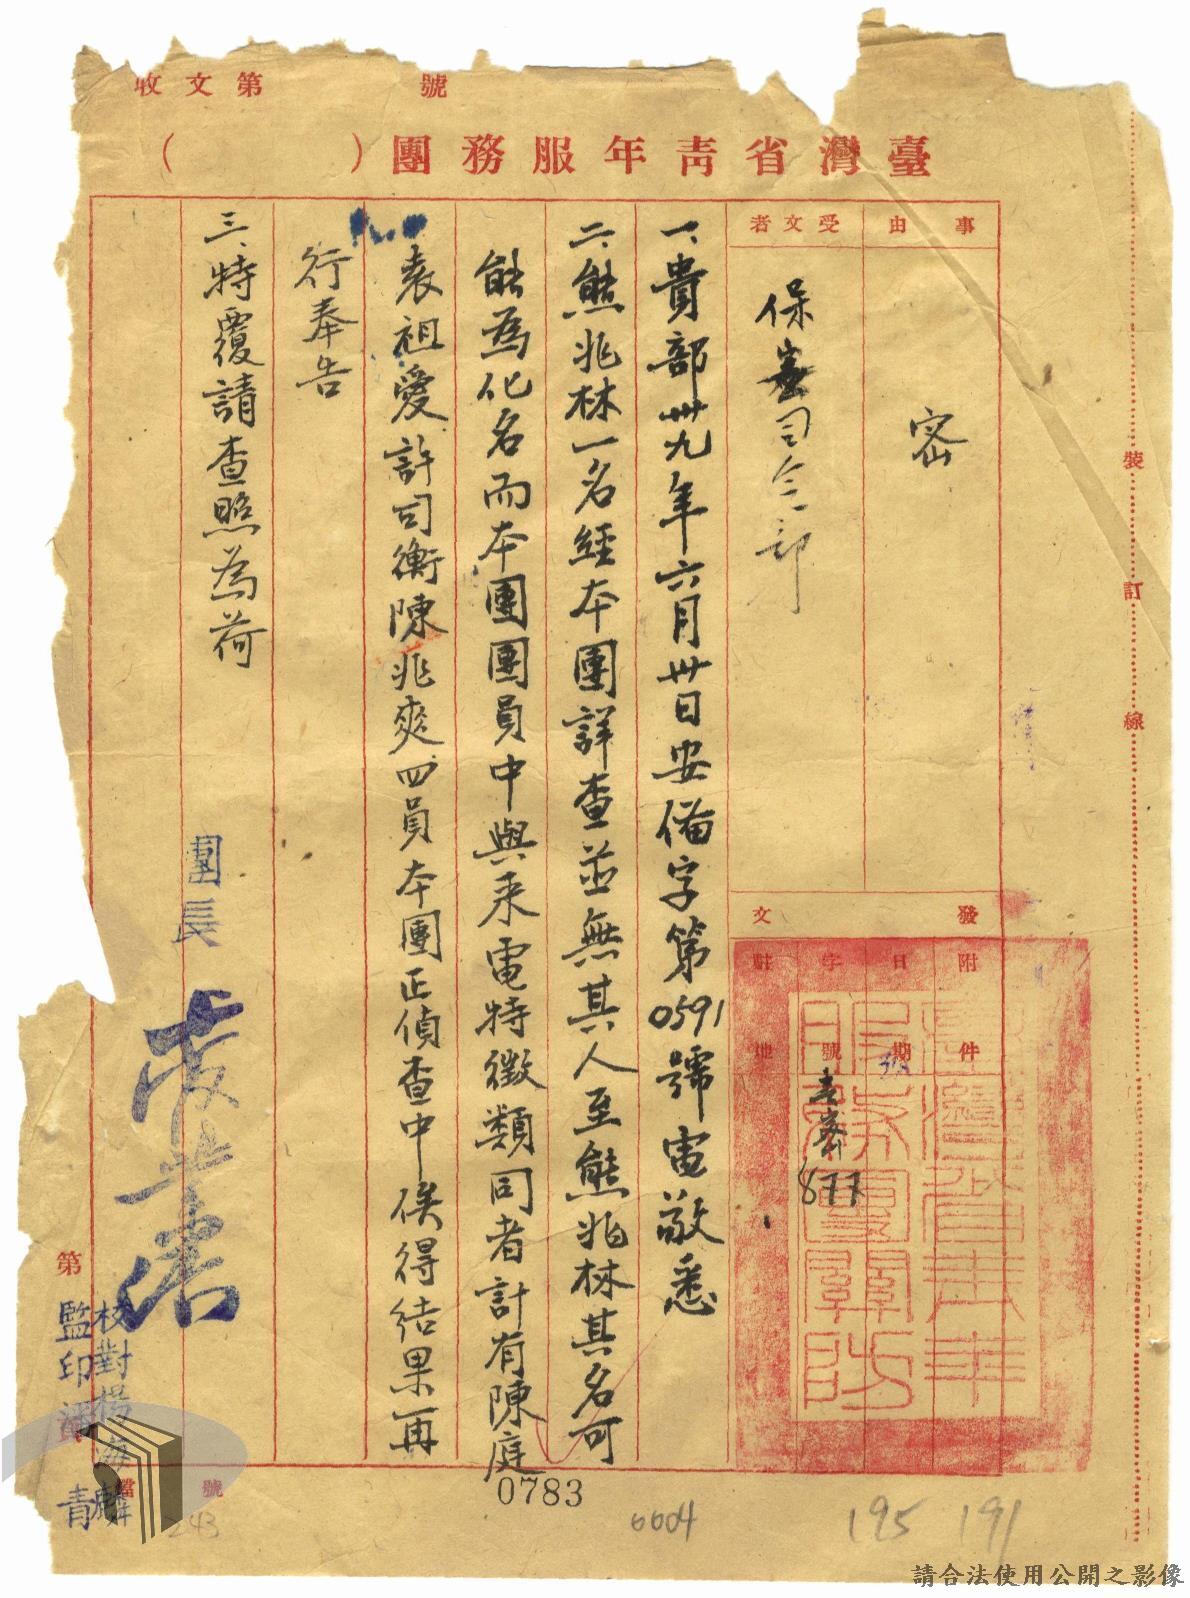 收文第　　號
臺灣省青年服務團（　　）
事由
密
受文者
保安司令部
發文
附件
日期
字號
吉密877
駐地
臺灣省青年服務團關防
一、貴部卅九年六月卅日安偹字第0591號電敬悉
二、熊兆林一名經本團詳查並無其人至熊兆林其名可
能為化名而本團團員中與来電特徵類同者計有陳庭
袁祖愛許司衡陳兆爽四員本團正偵查中俟得結果再
行奉告
三、特覆請查照為荷
團長
校對楊海麟
監印
青
第
檔號
裝訂線
0783
6604
195
191
243
請合法使用公開之影像